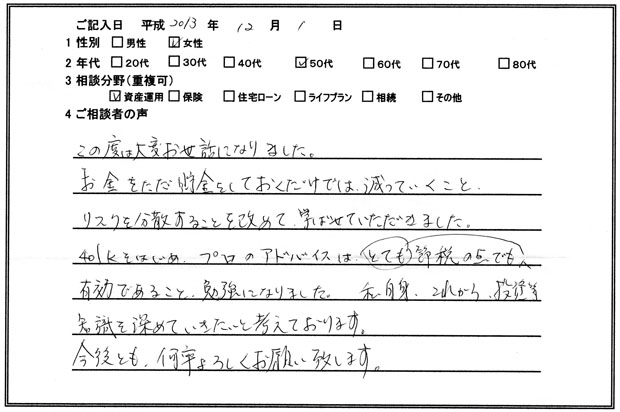 ご記入日 平成 2013 年 12 月 1 日
1 性別 □男性 ☑女性
2 年代 □20代 □30代 □40代 ☑50代 □60代 □70代 □80代
3 相談分野(重複可)
☑資産運用 □保険 □住宅ローン □ライフプラン □相続 □その他
4 ご相談者の声
この度は大変お世話になりました。
お金をただ貯金をしておくだけでは、減っていくこと、
リスクを分散することを改めて、学ばせていただきました。
401kをはじめ、プロのアドバイスは、とても節税の点でも、
有効であること、勉強になりました。 私自身、これから、投資等
知識を深めていきたいと考えております。
今後とも、何卒よろしくお願い致します。